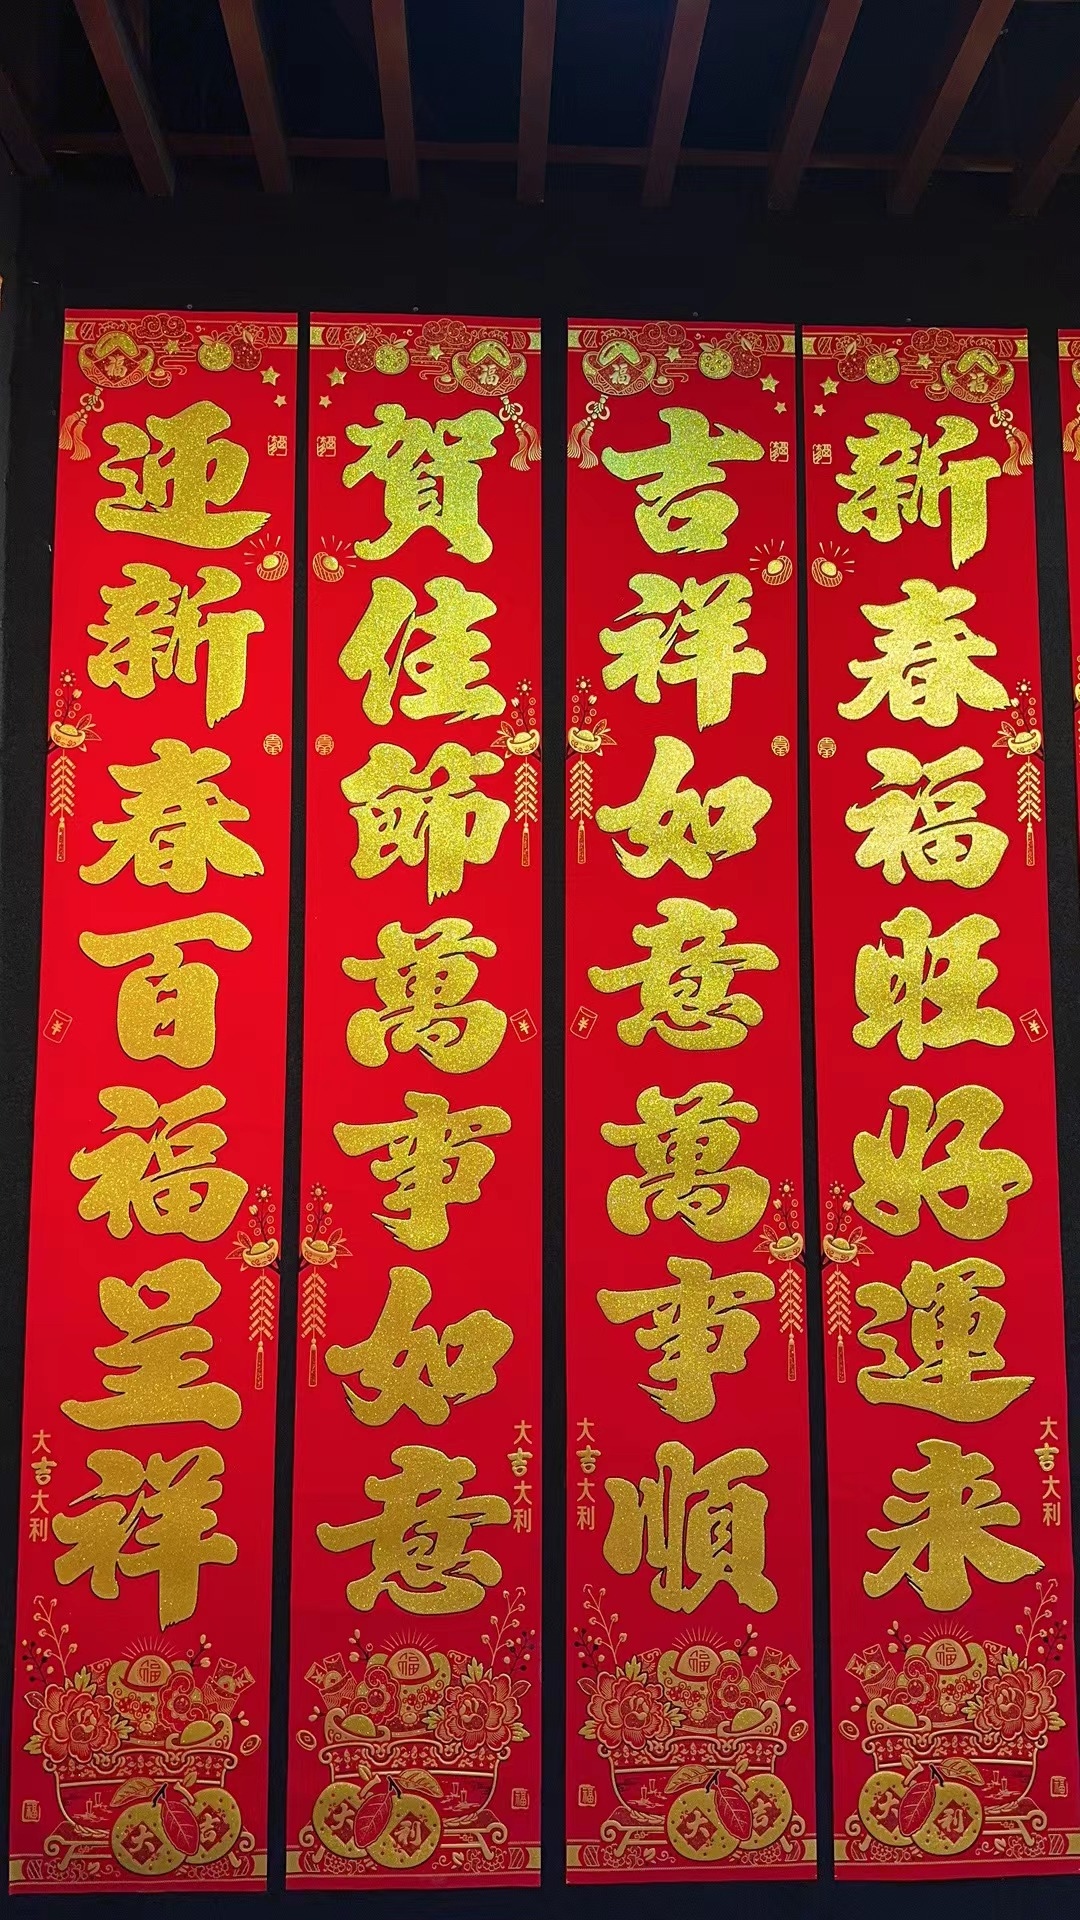 新春福旺好運来
吉祥如意萬事順
賀佳節萬事如意
迎新春百福呈祥
大吉大利
大吉大利
大吉大利
大吉大利
福
福
福
福
福
福
福
福
大利
大吉
大利
大吉